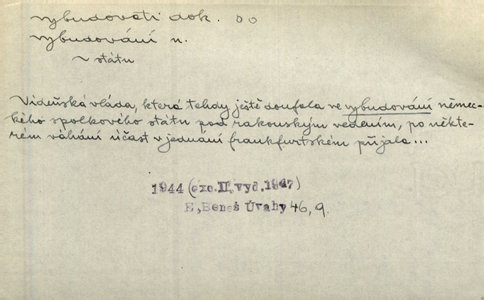 vybudovati dok. oo
vybudování n.
~ státu
Vídeňská vláda, která tehdy ještě doufala ve vybudování němec-
kého spolkového státu pod rakouským vedením, po někte-
rém váhání účast v jednání frankfurtském přijala...
1944 (exc.II, vyd.1947)
E, Beneš Úvahy 46, 9.